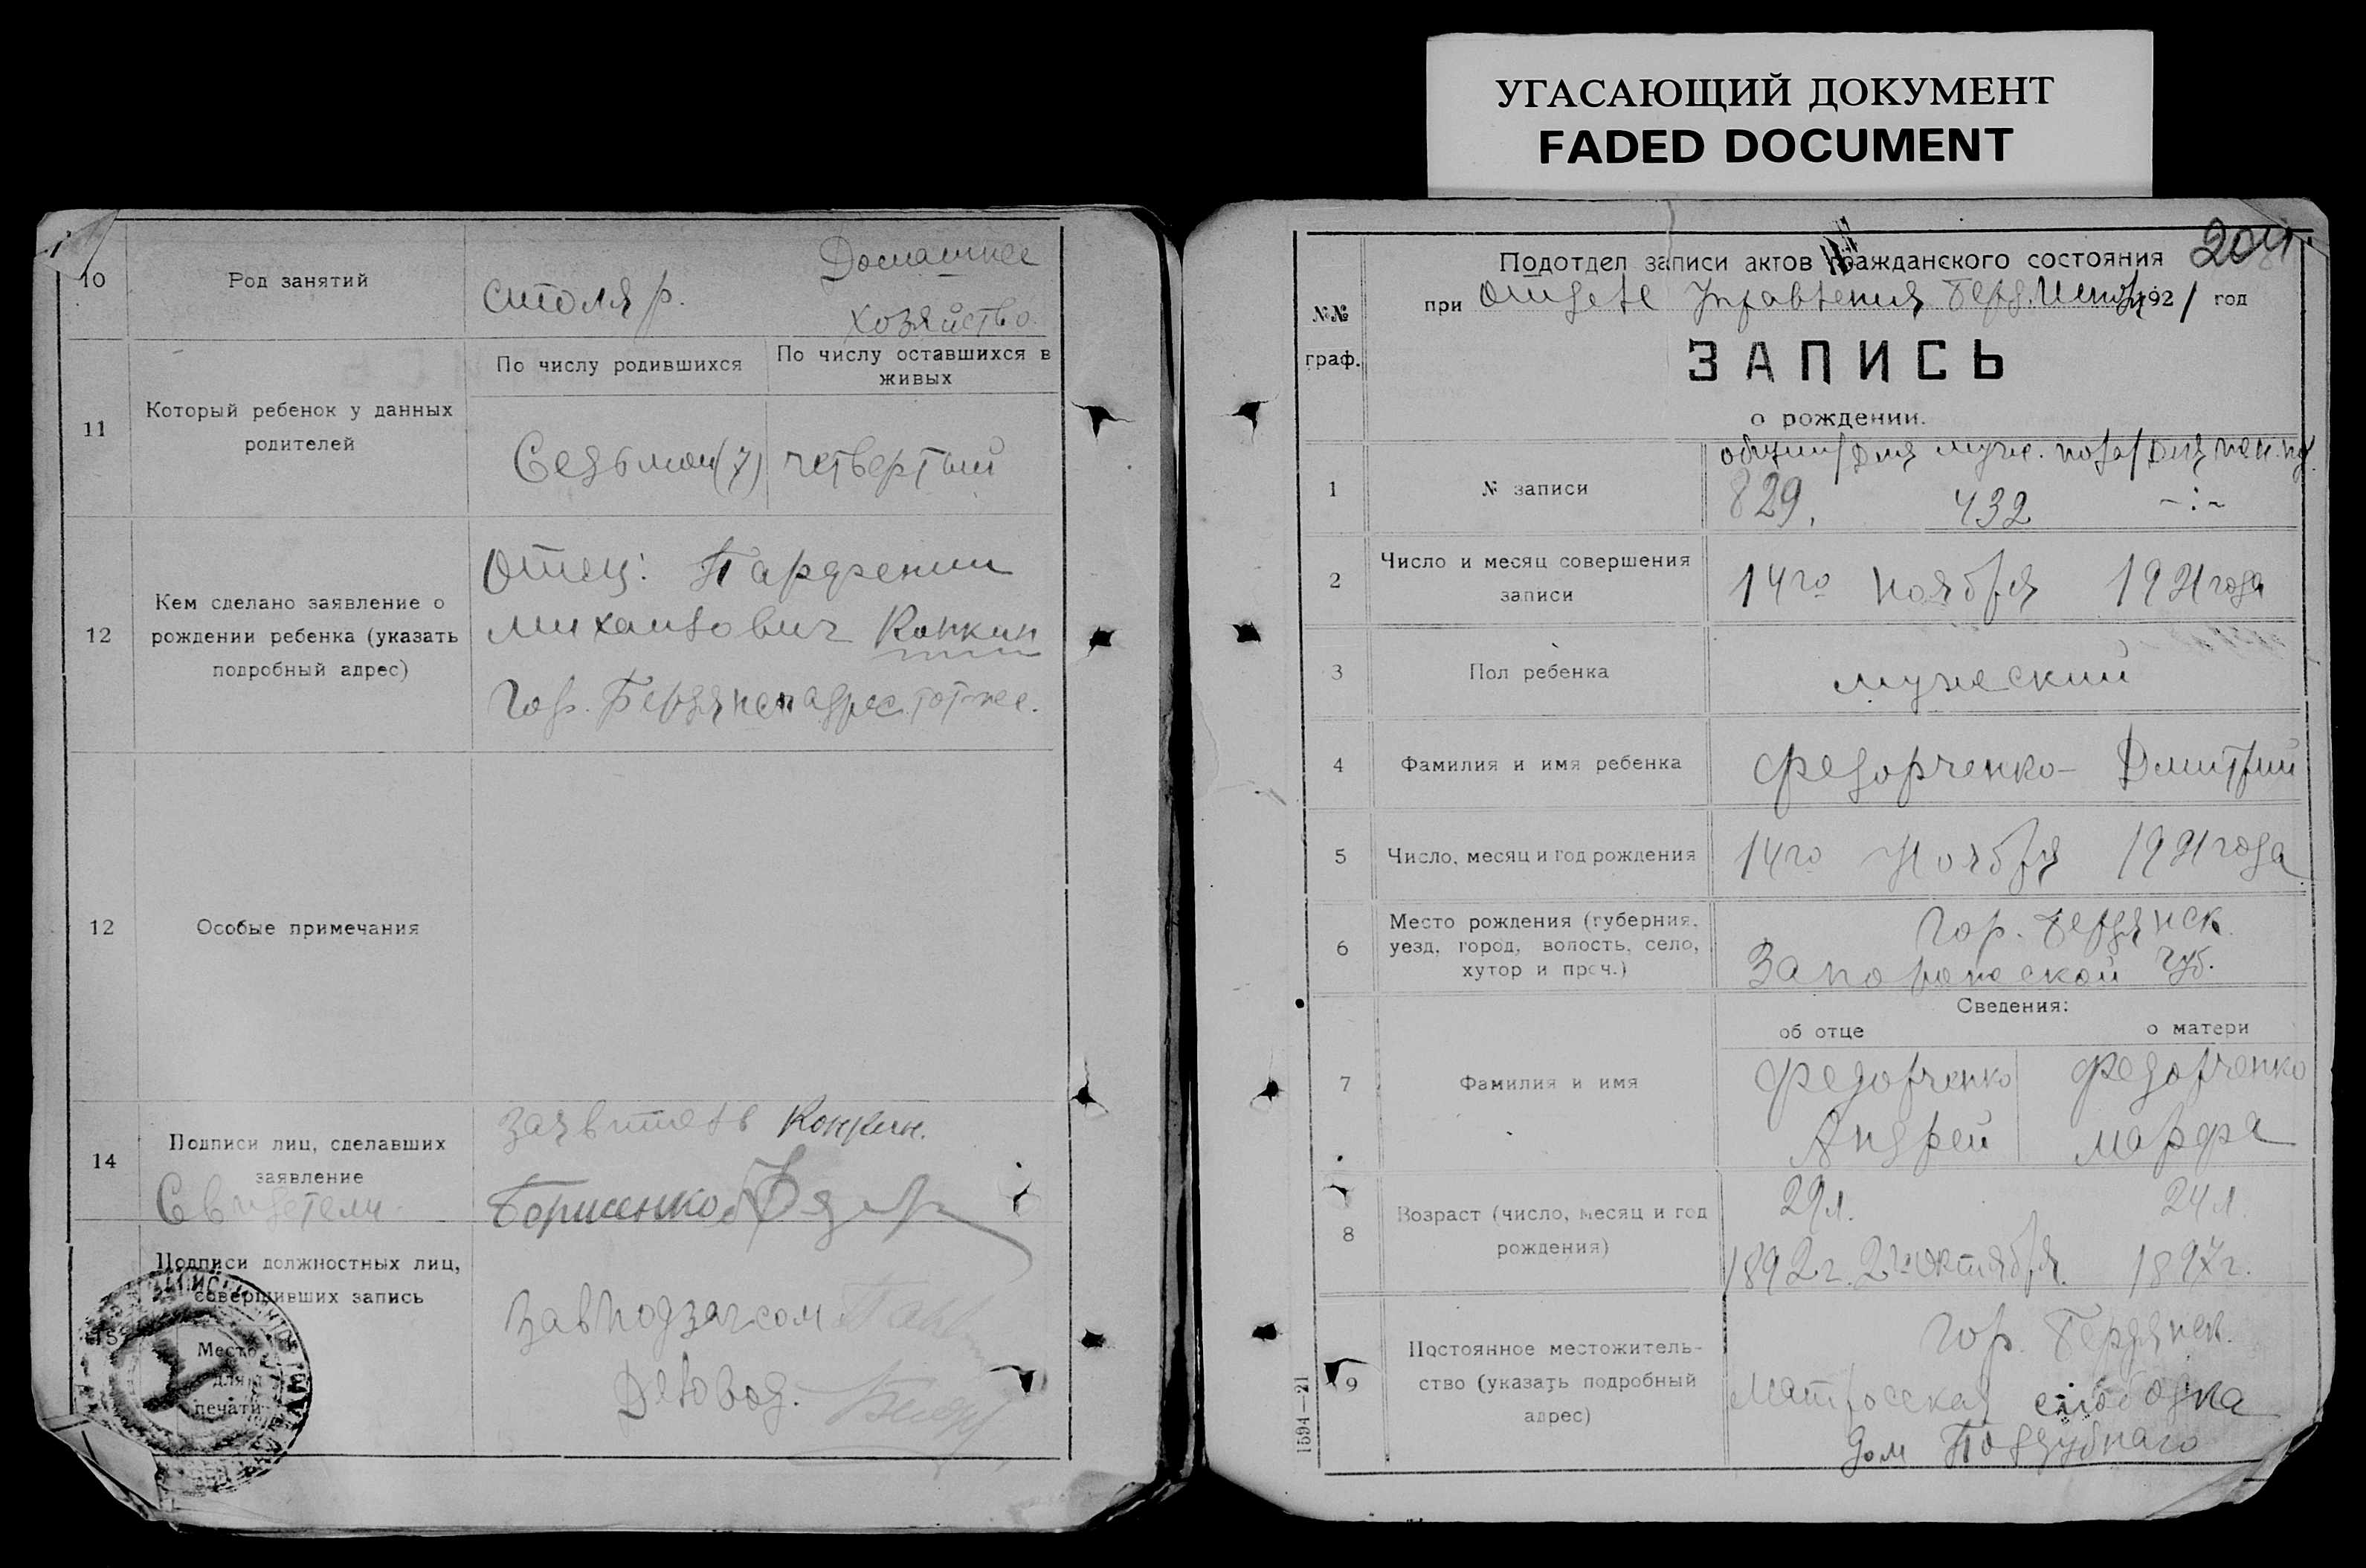 УГАСАЮЩИЙ ДОКУМЕНТ
FADED DOCUMENT
10
Род занятий
столяр.
Домашнее
хозяйство.
11
Который ребенок у данных
родителей
По числу родившихся
По числу оставшихся в
живых
Седьмой (7)
четвертый
12
Кем сделано заявление о
рождении ребенка (указать
подробный адрес)
Отец: Парфений
Михайлович Конкин
Гор. Бердянск адрес тот-же.
12
Особые примечания
14
Подписи лиц, сделавших
заявление
Свидетели
Заявитель Конкин.
Борисенко
Подписи должностных лиц,
совершивших запись
15
Место
для
печати
Завподзагсом
Деловод.
204
Подотдел записи актов гражданского состояния
при Отделе Управления Берд. 1921 год
№№
граф.
ЗАПИСЬ
о рождении.
1
№ записи
общий/для муж. пола/для жен. по.
829. 432 -:-
2
Число и месяц совершения
записи
14го ноября 1921 года
3
Пол ребенка
мужеский
4
Фамилия и имя ребенка
Федорченко- Дмитрий
5
Число, месяц и год рождения
14го Ноября 1921 года
6
Место рождения (губерния,
уезд, город, волость, село,
хутор и проч.)
Гор. Бердянск
Запорожской Губ.
Сведения:
об отце
о матери
7
Фамилия и имя
Федорченко
Андрей
Федорченко
Марфа
8
Возраст (число, месяц и год
рождения)
29 л.
1892 г. 2го Октября.
24 л.
1897 г.
9
Постоянное местожитель-
ство (указать подробный
адрес)
Гор. Бердянск.
Матросская слободка
дом Поддубнаго
1594—21